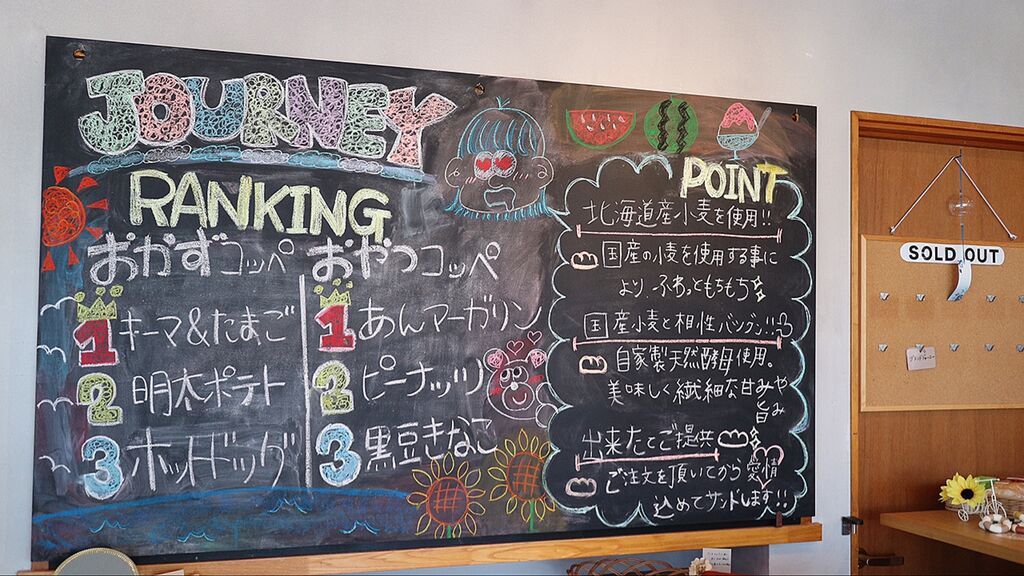 JOURNEY
RANKING
おかずコッペ
1 キーマ&たまご
2 明太ポテト
3 ホットドッグ
おやつコッペ
1 あんマーガリン
2 ピーナッツ
3 黒豆きなこ
POINT
北海道産小麦を使用!!
国産の小麦を使用する事に
より、ふわっともちもち
国産小麦と相性バツグン!!
自家製天然酵母使用。
美味しく繊細な甘みや
旨み
出来たてご提供
ご注文を頂いてから愛情
込めてサンドします!!
SOLD OUT